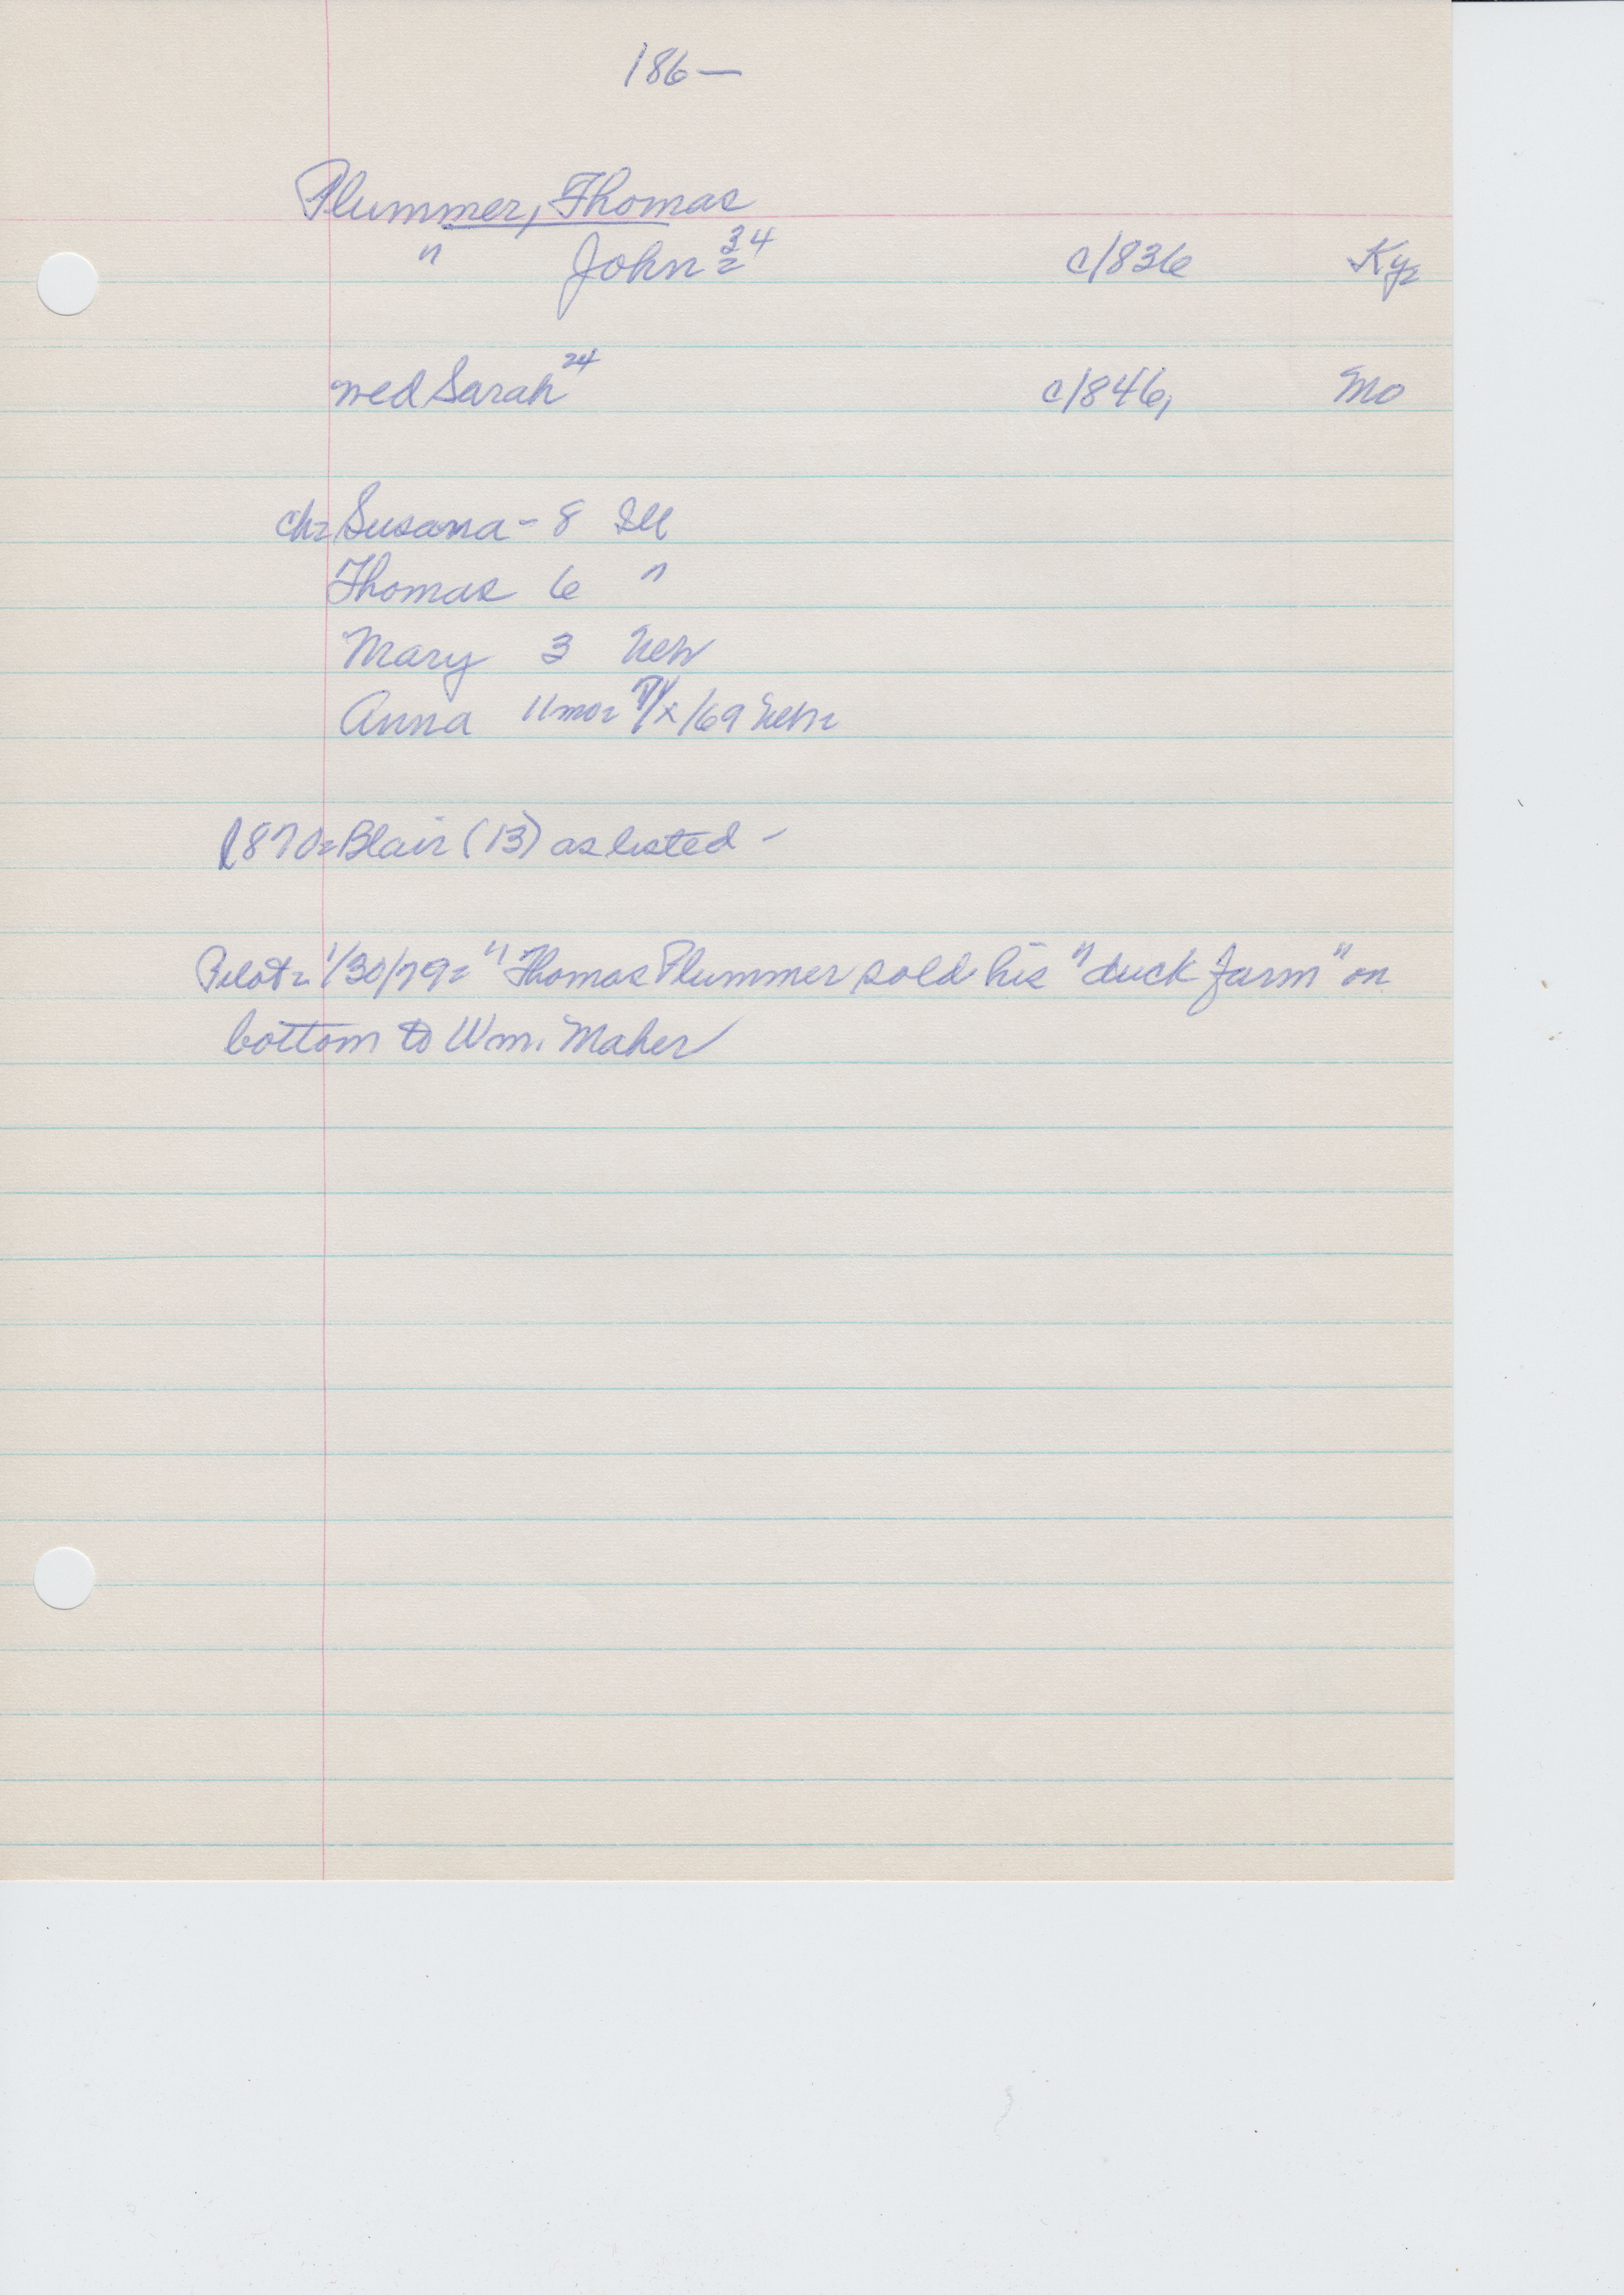 186—
Plummer, Thomas
" John 34 c1836 Ky
wed Sarah 24 c1846, Mo
ch= Susana - 8 Ill
Thomas 6 "
Mary 3 Neb
Anna 11mo= /69 Neb=
1870= Blair (13) as listed -
Pilot= 1/30/79= "Thomas Plummer sold his "duck farm" on
bottom to Wm. Maher